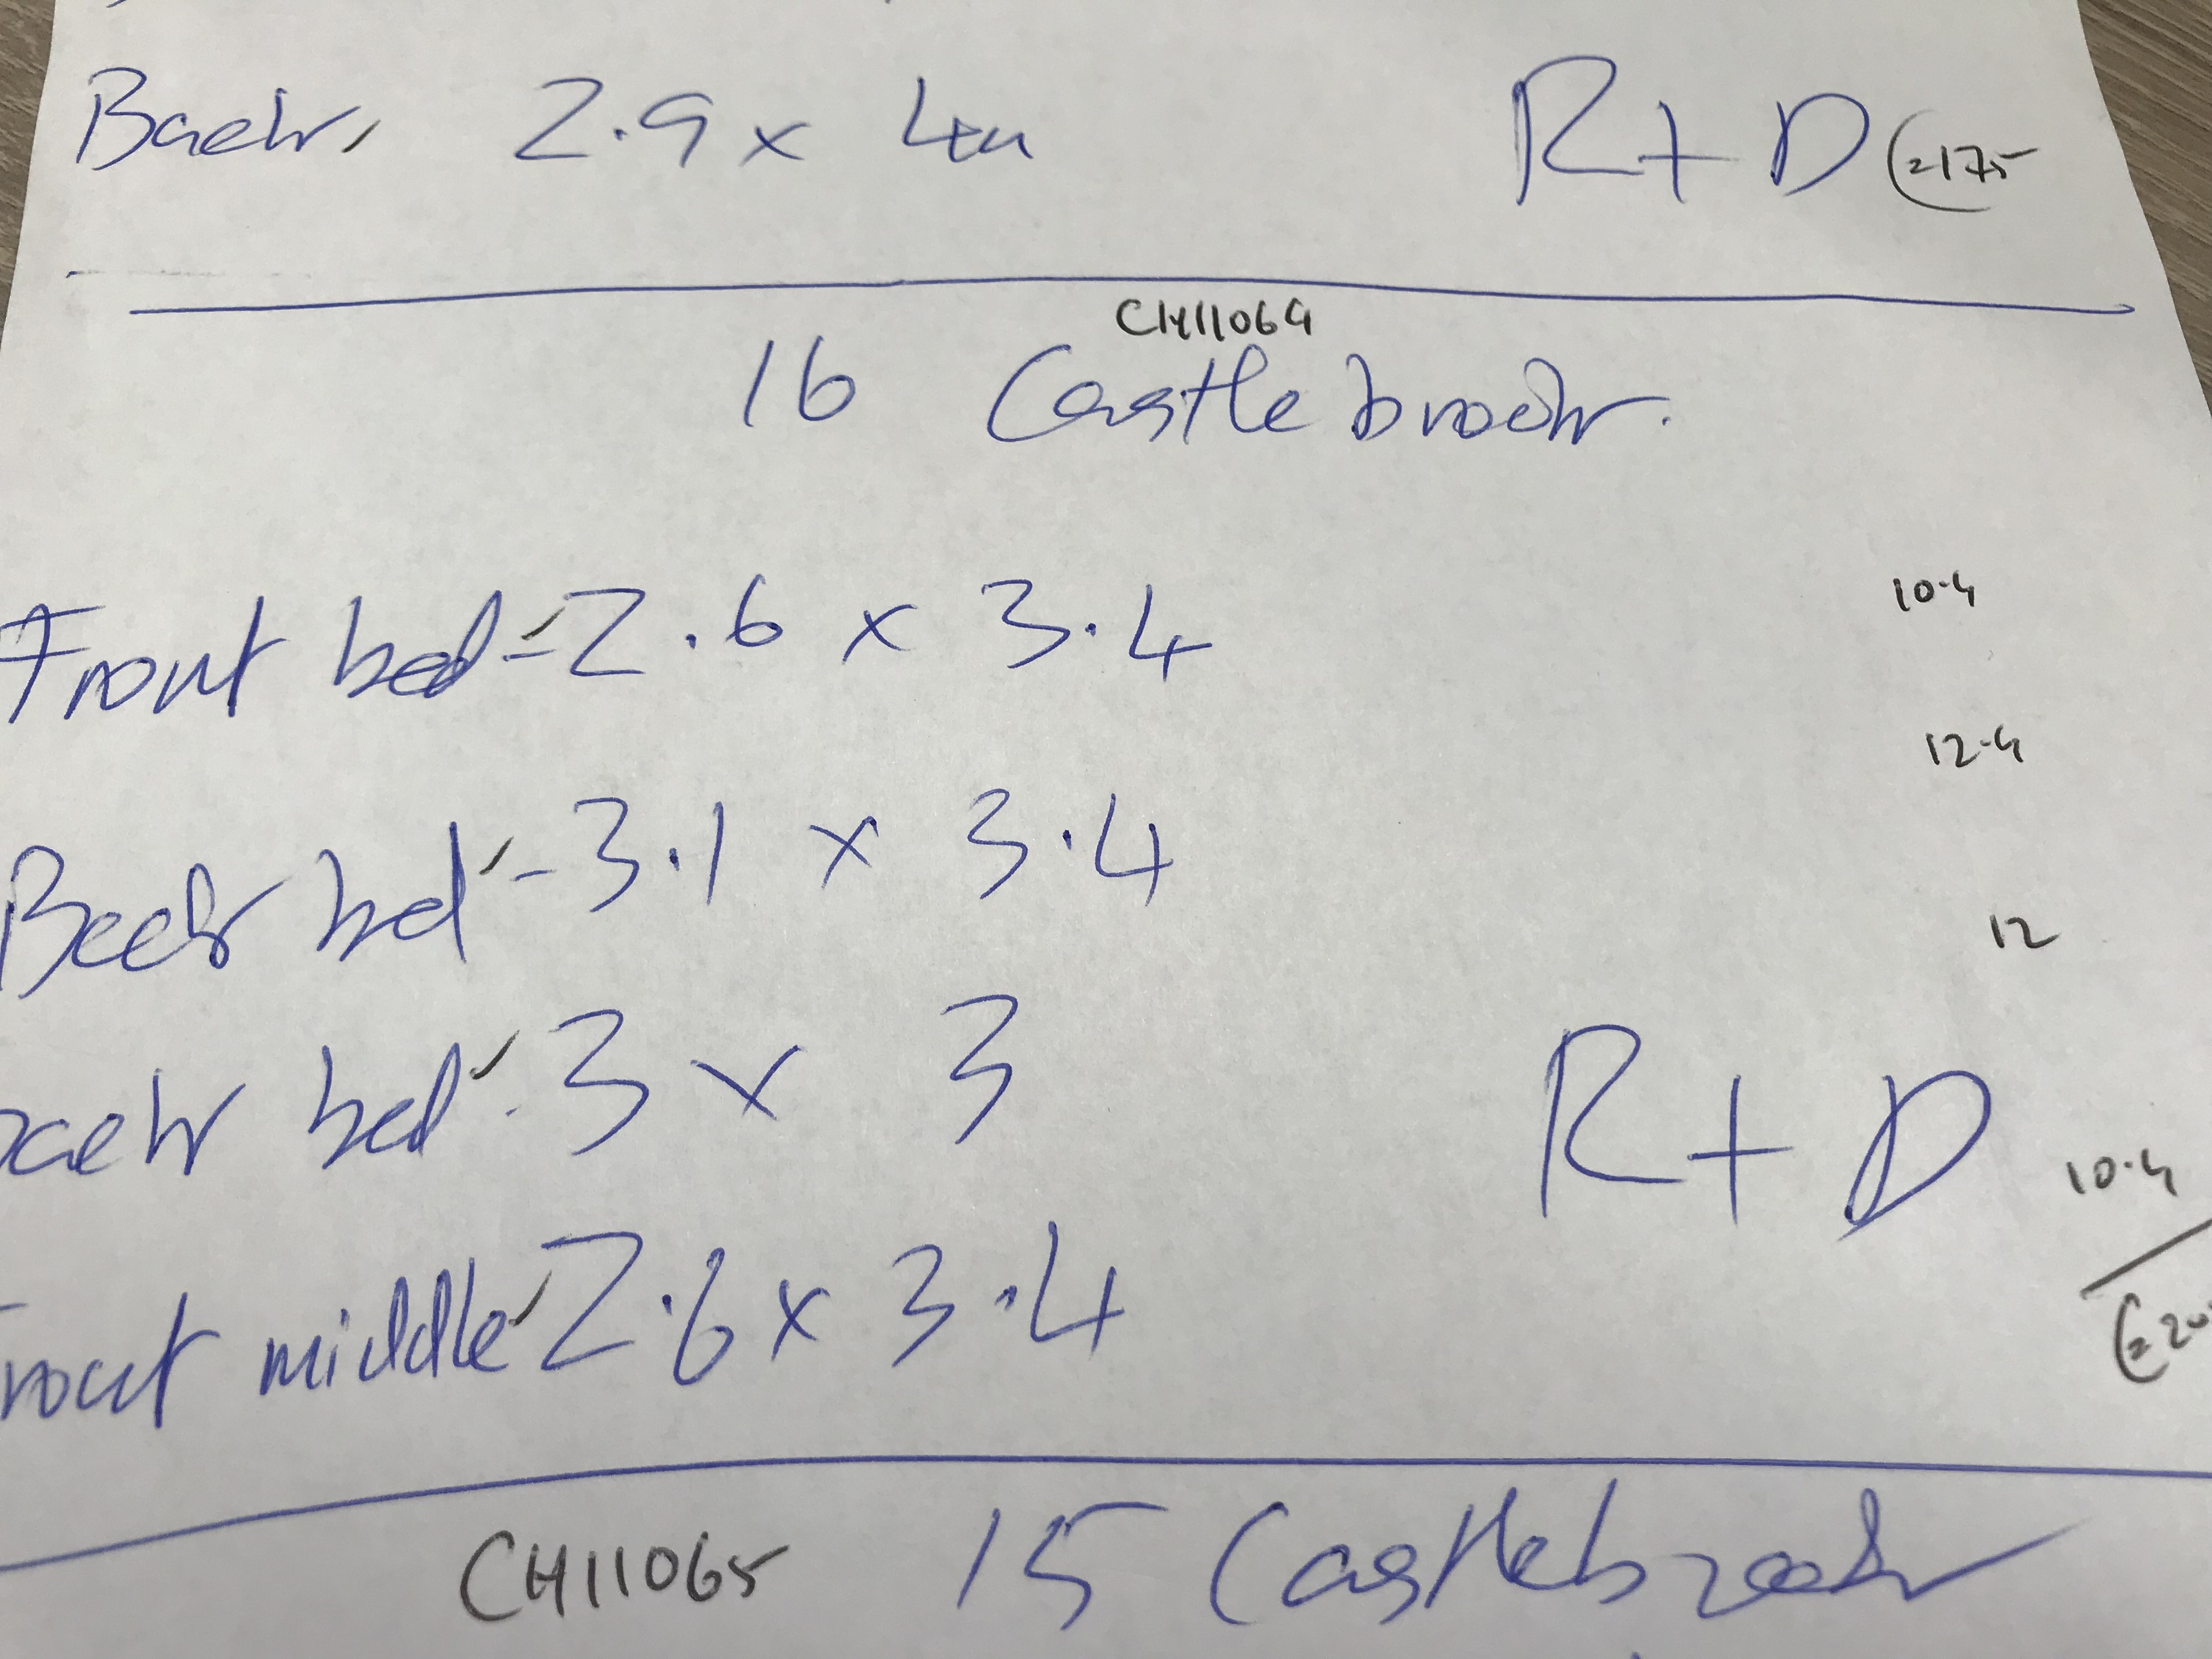 Back 2.9 x 4m R+D £175
CH11064
16 Castlebrook.
Front bed = 2.6 x 3.4 10.4
12.4
Back bed - 3.1 x 3.4
12
back bed - 3 x 3
R+D 10.4
Front middle 2.6 x 3.4
CH11065 15 Castlebrook